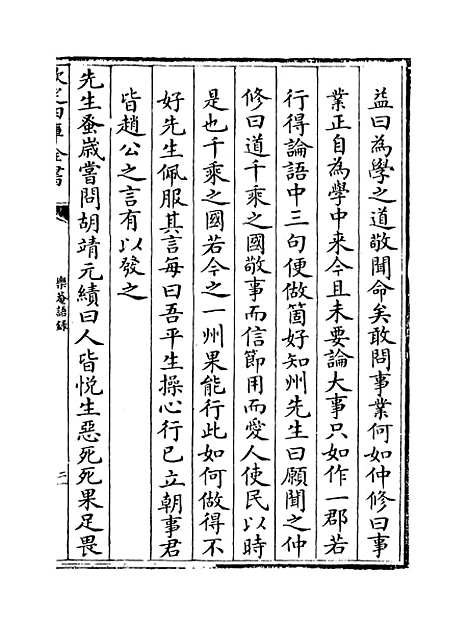 益曰為學之道敬聞命矣敢問事業何如仲修曰事
業正自為學中来今且未要論大事只如作一郡若
行得論語中三句便做箇好知州先生曰願聞之仲
修曰道千乘之國敬事而信節用而愛人使民以時
是也千乘之國若今之一州果能行此如何做得不
好先生佩服其言每曰吾平生操心行已立朝事君
皆趙公之言有以發之
先生蚤嵗嘗問胡靖元績曰人皆悦生惡死死果足畏
欽定四庫全書
樂菴語錄
二